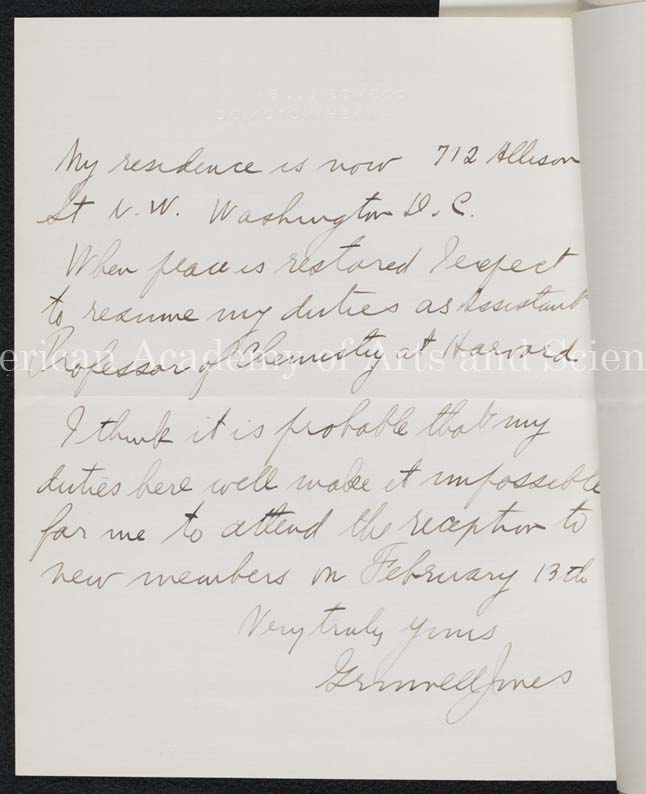 My residence is now 712 Allison
St N.W. Washington D.C.
When peace is restored I expect
to resume my duties as Assistant
Professor of Chemistry at Harvard.
American Academy of Arts and Scien
I think it is probable that my
duties here will make it impossible
for me to attend the reception to
new members on February 13th
Very truly yours
Grinnell Jones